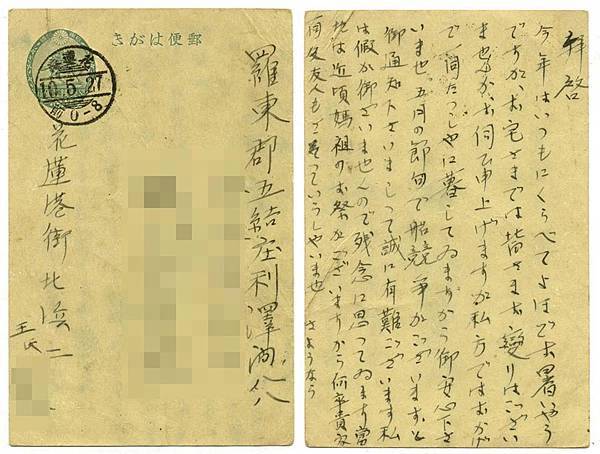 郵便はがき
10.5.27
前0-8
羅東郡五結庄利澤
花蓮港街北濱二
王氏
拝啓
今年はいつもにくらべてよほどお暑いやう
ですが、お宅さまでは皆さまお変りはござい
ませんか、お伺ひ申上げますが私方ではおかげ
で一同たつしやに暮してゐますから御安心下さ
いませ、五月の節句で船競争がございますと
御通知下さいまして誠に有難うございます 私
は假が御ざいませんので残念に思つてゐます 當
地は近頃媽祖のお祭がございますから何卒貴方
友人も つていらつしやいませ さようなら